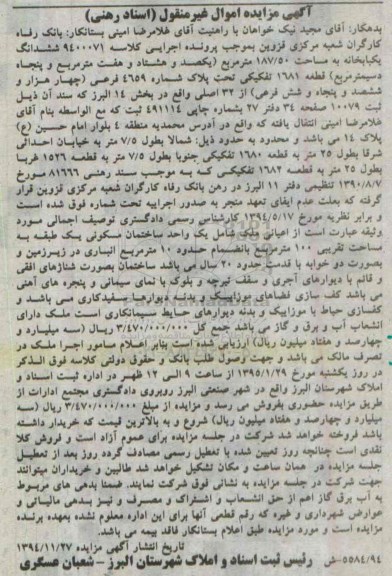 آگهی مزایده اموال غیرمنقول (اسناد رهنی)
بدهکار: آقای مجید نیک خواهان با راهنیت آقای غلامرضا امینی بستانکار: بانک رفاه
کارگران شعبه مرکزی قزوین بموجب پرونده اجرایی کلاسه ۹۴۰۰۰۷۱ ششدانگ
یکبابخانه به مساحت ۱۸۷/۵۰ مترمربع (یکصد و هشتاد و هفت مترمربع و پنجاه
دسیمترمربع) قطعه ۱۶۸۱ تفکیکی تحت پلاک شماره ۴۶۵۹ فرعی (چهار هزار و
ششصد و پنجاه و شش فرعی) از ۳۲ اصلی واقع در بخش ۱۴ البرز که سند آن ذیل
ثبت ۱۰۰۷۹ صفحه ۳۴ دفتر ۲۷ بشماره چاپی ۴۹۱۱۱۴ ثبت که مع الواسطه بنام آقای
غلامرضا امینی انتقال یافته که واقع در آدرس محمدیه منطقه ۴ بلوار امام حسین (ع)
پلاک ۱۴ می باشد و محدود به حدود ذیل: شمالا بطول ۷/۵ متر به خیابان احداثی
شرقا بطول ۲۵ متر به قطعه ۱۶۸۰ تفکیکی جنوبا بطول ۷/۵ متر به قطعه ۱۵۲۶ غربا
بطول ۲۵ متر به قطعه ۱۶۸۲ تفکیکی که به موجب سند رهنی ۸۱۶۶۶ مورخ
۱۳۹۰/۸/۷ تنظیمی دفتر ۱۱ البرز در رهن بانک رفاه کارگران شعبه مرکزی قزوین قرار
گرفته که بعلت عدم ایفای تعهد منجر به صدور اجراییه تحت شماره فوق شده است
و برابر نظریه مورخ ۱۳۹۴/۵/۱۷ کارشناس رسمی دادگستری توصیف اجمالی مورد
وثیقه عبارت است از اعیانی ملک شامل یک واحد ساختمان مسکونی یک طبقه به
مساحت تقریبی ۱۰۰ مترمربع بانضمام حدود ۱۰ مترمربع انباری در زیرزمین و
بصورت دو خوابه با قدمت حدود ۲۰ سال می باشد ساختمان بصورت شناژهای افقی
و قائم با دیوارهای آجری و سقف تیرچه و بلوک با نمای سیمانی و پنجره های آهنی
می باشد کف سازی فضاهای موزاییک و بدنه دیوارها سفیدکاری می باشد و
کفسازی حیاط با موزاییک و بدنه دیوارهای حایط سیمانکاری است ملک دارای
انشعاب آب و برق و گاز می باشد جمع کل ۳/۴۷۰/۰۰۰/۰۰۰ ریال (سه میلیارد و
چهارصد و هفتاد میلیون ریال) ارزیابی شده است بنابر اعلام مامور اجرا ملک در
تصرف مالک می باشد و جهت وصول طلب بانک و حقوق دولتی کلاسه فوق الذکر
در روز یکشنبه مورخ ۱۳۹۵/۱/۲۹ از ساعت ۹ الی ۱۲ ظهر در اداره ثبت اسناد و
املاک شهرستان البرز واقع در شهر صنعتی البرز روبروی دادگستری مجتمع ادارات از
طریق مزایده حضوری بفروش می رسد و مزایده از مبلغ ۳/۴۷۰/۰۰۰/۰۰۰ ریال (سه
میلیارد و چهارصد و هفتاد میلیون ریال) شروع و به بالاترین قیمت که خریدار داشته
باشد فروخته خواهد شد شرکت در جلسه مزایده برای عموم آزاد است و فروش کلا
نقدی است چنانچه روز تعیین شده با تعطیل رسمی مصادف گردد روز بعد از تعطیل
جلسه مزایده در همان ساعت و مکان تشکیل خواهد شد طالبین و خریداران میتوانند
جهت شرکت در جلسه مزایده به نشانی فوق شرکت نمایند. ضمنا بدهی های مربوط
به آب برق گاز اعم از حق انشعاب و اشتراک و مصرف و نیز بدهی مالیاتی و
عوارض شهرداری و غیره که رقم قطعی آنها برای این اداره معلوم نشده بعهده برنده
مزایده است و مورد مزایده طبق اعلام بستانکار فاقد بیمه می باشد.
تاریخ انتشار آگهی مزایده ۱۳۹۴/۱۱/۲۷
۵۵۸۴/۹۴-ش رئیس ثبت اسناد و املاک شهرستان البرز - شعبان عسگری